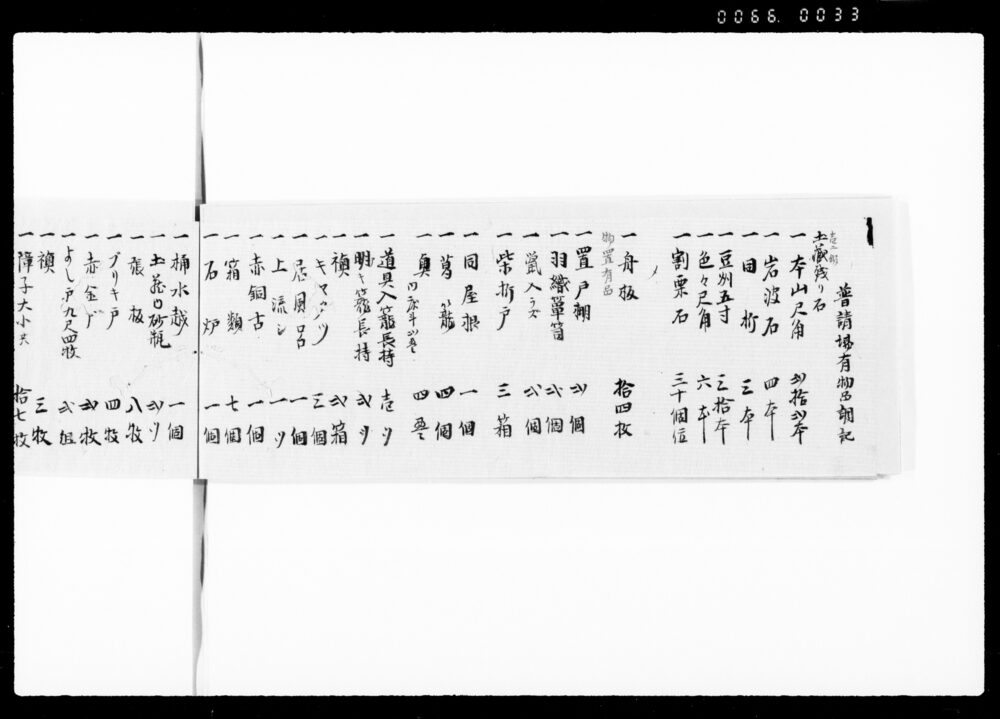 0066.0033
普請場有物品調記
土蔵残り石
一 本山尺角 弐拾弐本
一 岩波石 四本
一 田桁 三本
一 豆州五寸 三拾本
一 色々尺角 六本
一 割栗石 三十個位
一 舟板 拾四枚
物置有品
一 置戸棚 弐個
一 羽織簞笥 弐個
一 弐個
一 柴折戸 三箱
一 同屋根 一個
一 葛籠 四個
一 奥 四
一 道具入籠長持 壱ツ
一 明キ籠長持 弐ツ
一 弐箱
一 三個
一 居風呂 一個
一 上流シ 一ツ
一 赤銅古 一個
一 箱類 七個
一 石炉 一個
一 桶水越 一個
一 土蔵口砂瓶 弐ツ
一 張板 八枚
一 ブリキ戸 四枚
一 赤金戸 弐枚
一 よし戸九尺四枚 弐組
一 三枚
一 障子大小共 拾七枚